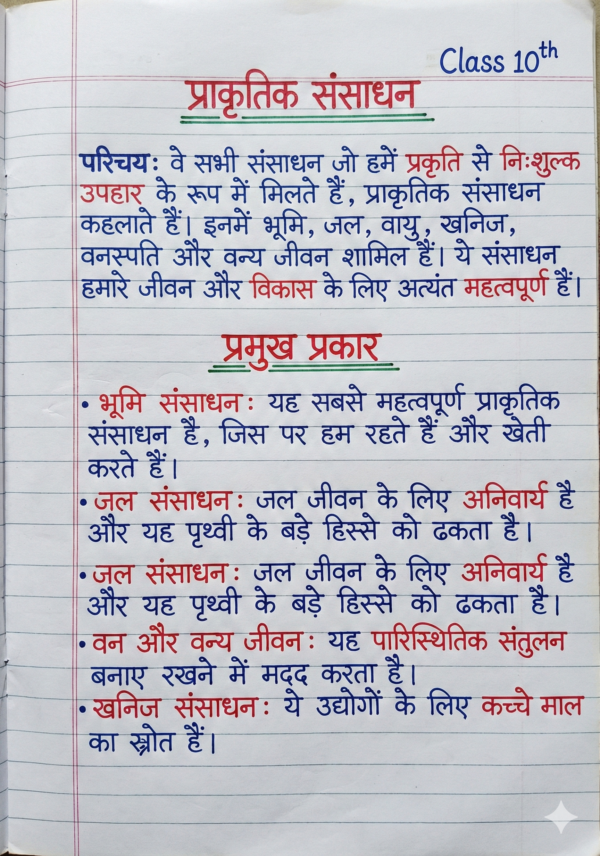 Class 10th
प्राकृतिक संसाधन
परिचय: वे सभी संसाधन जो हमें प्रकृति से निःशुल्क
उपहार के रूप में मिलते हैं, प्राकृतिक संसाधन
कहलाते हैं। इनमें भूमि, जल, वायु, खनिज,
वनस्पति और वन्य जीवन शामिल हैं। ये संसाधन
हमारे जीवन और विकास के लिए अत्यंत महत्वपूर्ण हैं।
प्रमुख प्रकार
• भूमि संसाधन: यह सबसे महत्वपूर्ण प्राकृतिक
संसाधन है, जिस पर हम रहते हैं और खेती
करते हैं।
• जल संसाधन: जल जीवन के लिए अनिवार्य है
और यह पृथ्वी के बड़े हिस्से को ढकता है।
• जल संसाधन: जल जीवन के लिए अनिवार्य है
और यह पृथ्वी के बड़े हिस्से को ढकता है।
• वन और वन्य जीवन: यह पारिस्थितिक संतुलन
बनाए रखने में मदद करता है।
• खनिज संसाधन: ये उद्योगों के लिए कच्चे माल
का स्रोत हैं।